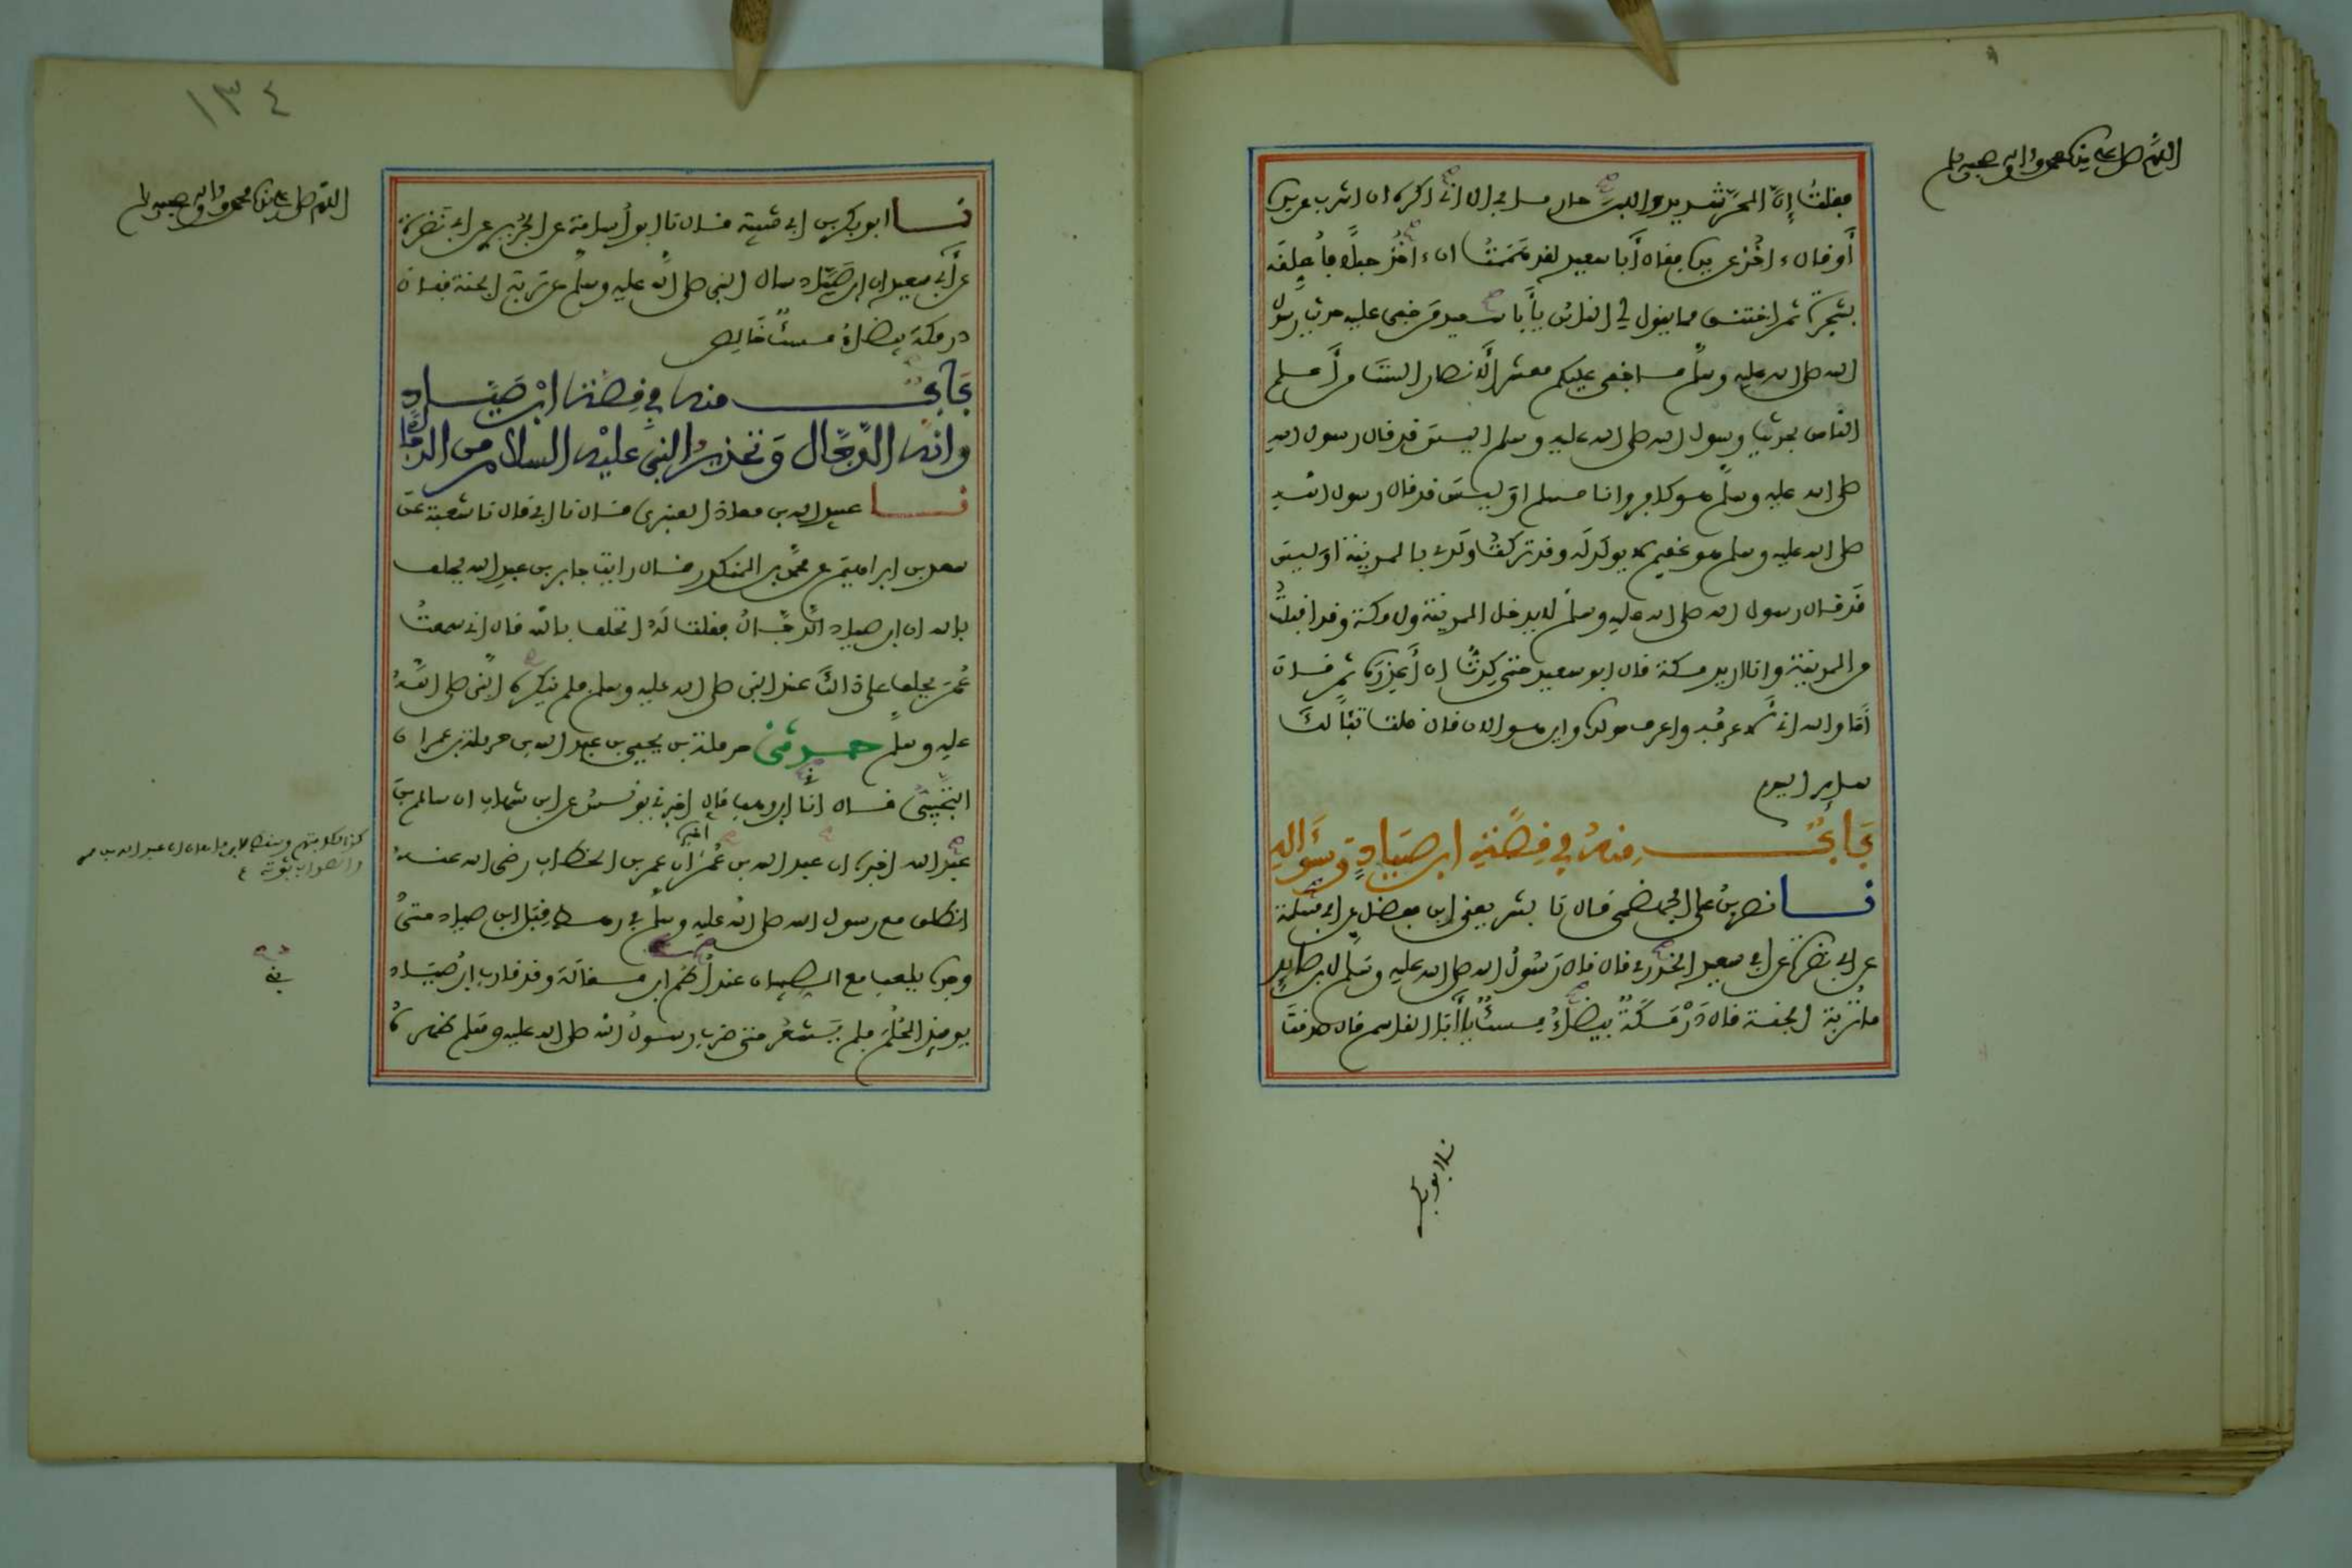 اللهم صل على سيدنا محمد واله وصحبه وسلم
فقلتُ إنَّ الحرَّ شديد واللبن حار ما بي الا اني اكره ان اشرب عن يده
أَو قال ءاخُذ عن يده فقال أبا سعيد لقد هَمَمْتُ ان ءاخُذ حبلاً فأُعلقه
بشجرة ثم اختنق مما يقول لي الناس يأَبا سعيد من خفي عليه حديث رسول
الله صلى الله عليه وسلم ما خفي عليكم معشر الأَنصار الستَ من أَعلم
الناس بحديث رسول الله صلى الله عليه وسلم اليس قد قال رسول الله
صلى الله عليه وسلم هو كافر وانا مسلم اوَليسَ قد قال رسول الله
صلى الله عليه وسلم هو عقيم لا يولَد لَه وقد تركتُ ولَدي بالمدينة اوَليسَ
قَد قال رسول الله صلى الله عليه وسلم لا يدخل المدينة ولا مكة وقد اقبلتُ
من المدينة وانا اريد مكة قال ابو سعيد حتى كِدْتُ ان أَعذِرَه ثم قال
أَمَا والله اني لأَعرفه واعرف مولده واين هو الان قال قلت تبًّا لكَ
ساير اليوم
بَابٌ منه في قصة ابن صيادٍ وسُؤَاله
نا نصر بن علي الجهضمي قال نا بشر يعني ابن مفضل عن ابي مسلمة
عن ابي نضرة عن ابي سعيد الخدري قال قال رَسُولُ الله صلى الله عليه وسلم لابن صايد
ما تُربة الجنة قال دَرْمَكَةٌ بيضاءُ مسكٌ يأَبَا القاسم قال صدقتَ
نا ابو بكر
١٣٤
اللهم صل على سيدنا محمد واله وصحبه وسلم
نا ابو بكر بن ابي شيبة قال نا ابو أُسامة عن الجُريري عن ابي نَضرة
عن أَبي سعيد ان ابن صَيَّاد سال النبي صلى الله عليه وسلم عن تربة الجنة فقال
درمكة بيضاءُ مسكٌ خَالِص
بَابٌ منه في قصة ابن صَيَّاد
وانه الدَّجَّال وَتحذيرُ النبي عليْه السلام من الدجال
نا عبيد الله بن معاذ العنبري قال نا ابي قال نا شعبة عن
سعد بن ابراهيم عن محمد بن المنكدر قال رايت جابر بن عبد الله يحلف
بالله ان ابن صياد الدَّجَّالُ فقلت لَهُ اتحلف بالله قال اني سمعتُ
عُمَرَ يحلف على ذالكَ عند النبي صلى الله عليه وسلم فلم ينكره النبي صلى الله
عليه وسلم حدثنى حرملة بن يحيى بن عبد الله بن حرملة بن عمران
التُجيبي قال أنا ابن وهب قال اخبرني يونُسُ عن ابن شهاب ان سالم بنَ
عبد الله اخبره ان عبد الله بن عُمَرَ اخبره ان عمر بن الخطاب رضي الله عنه
انطلق مع رسول الله صلى الله عليه وسلم في رهط قِبَل ابن صياد حتى
وجده يلعب مع الصبيان عند أُطُم ابن مغالَة وقد قارب ابنُ صيَّاد
يوميذ الحُلُمَ فلم يَشعُر حتى ضرب رسولُ الله صلى الله عليه وسلم ظهره